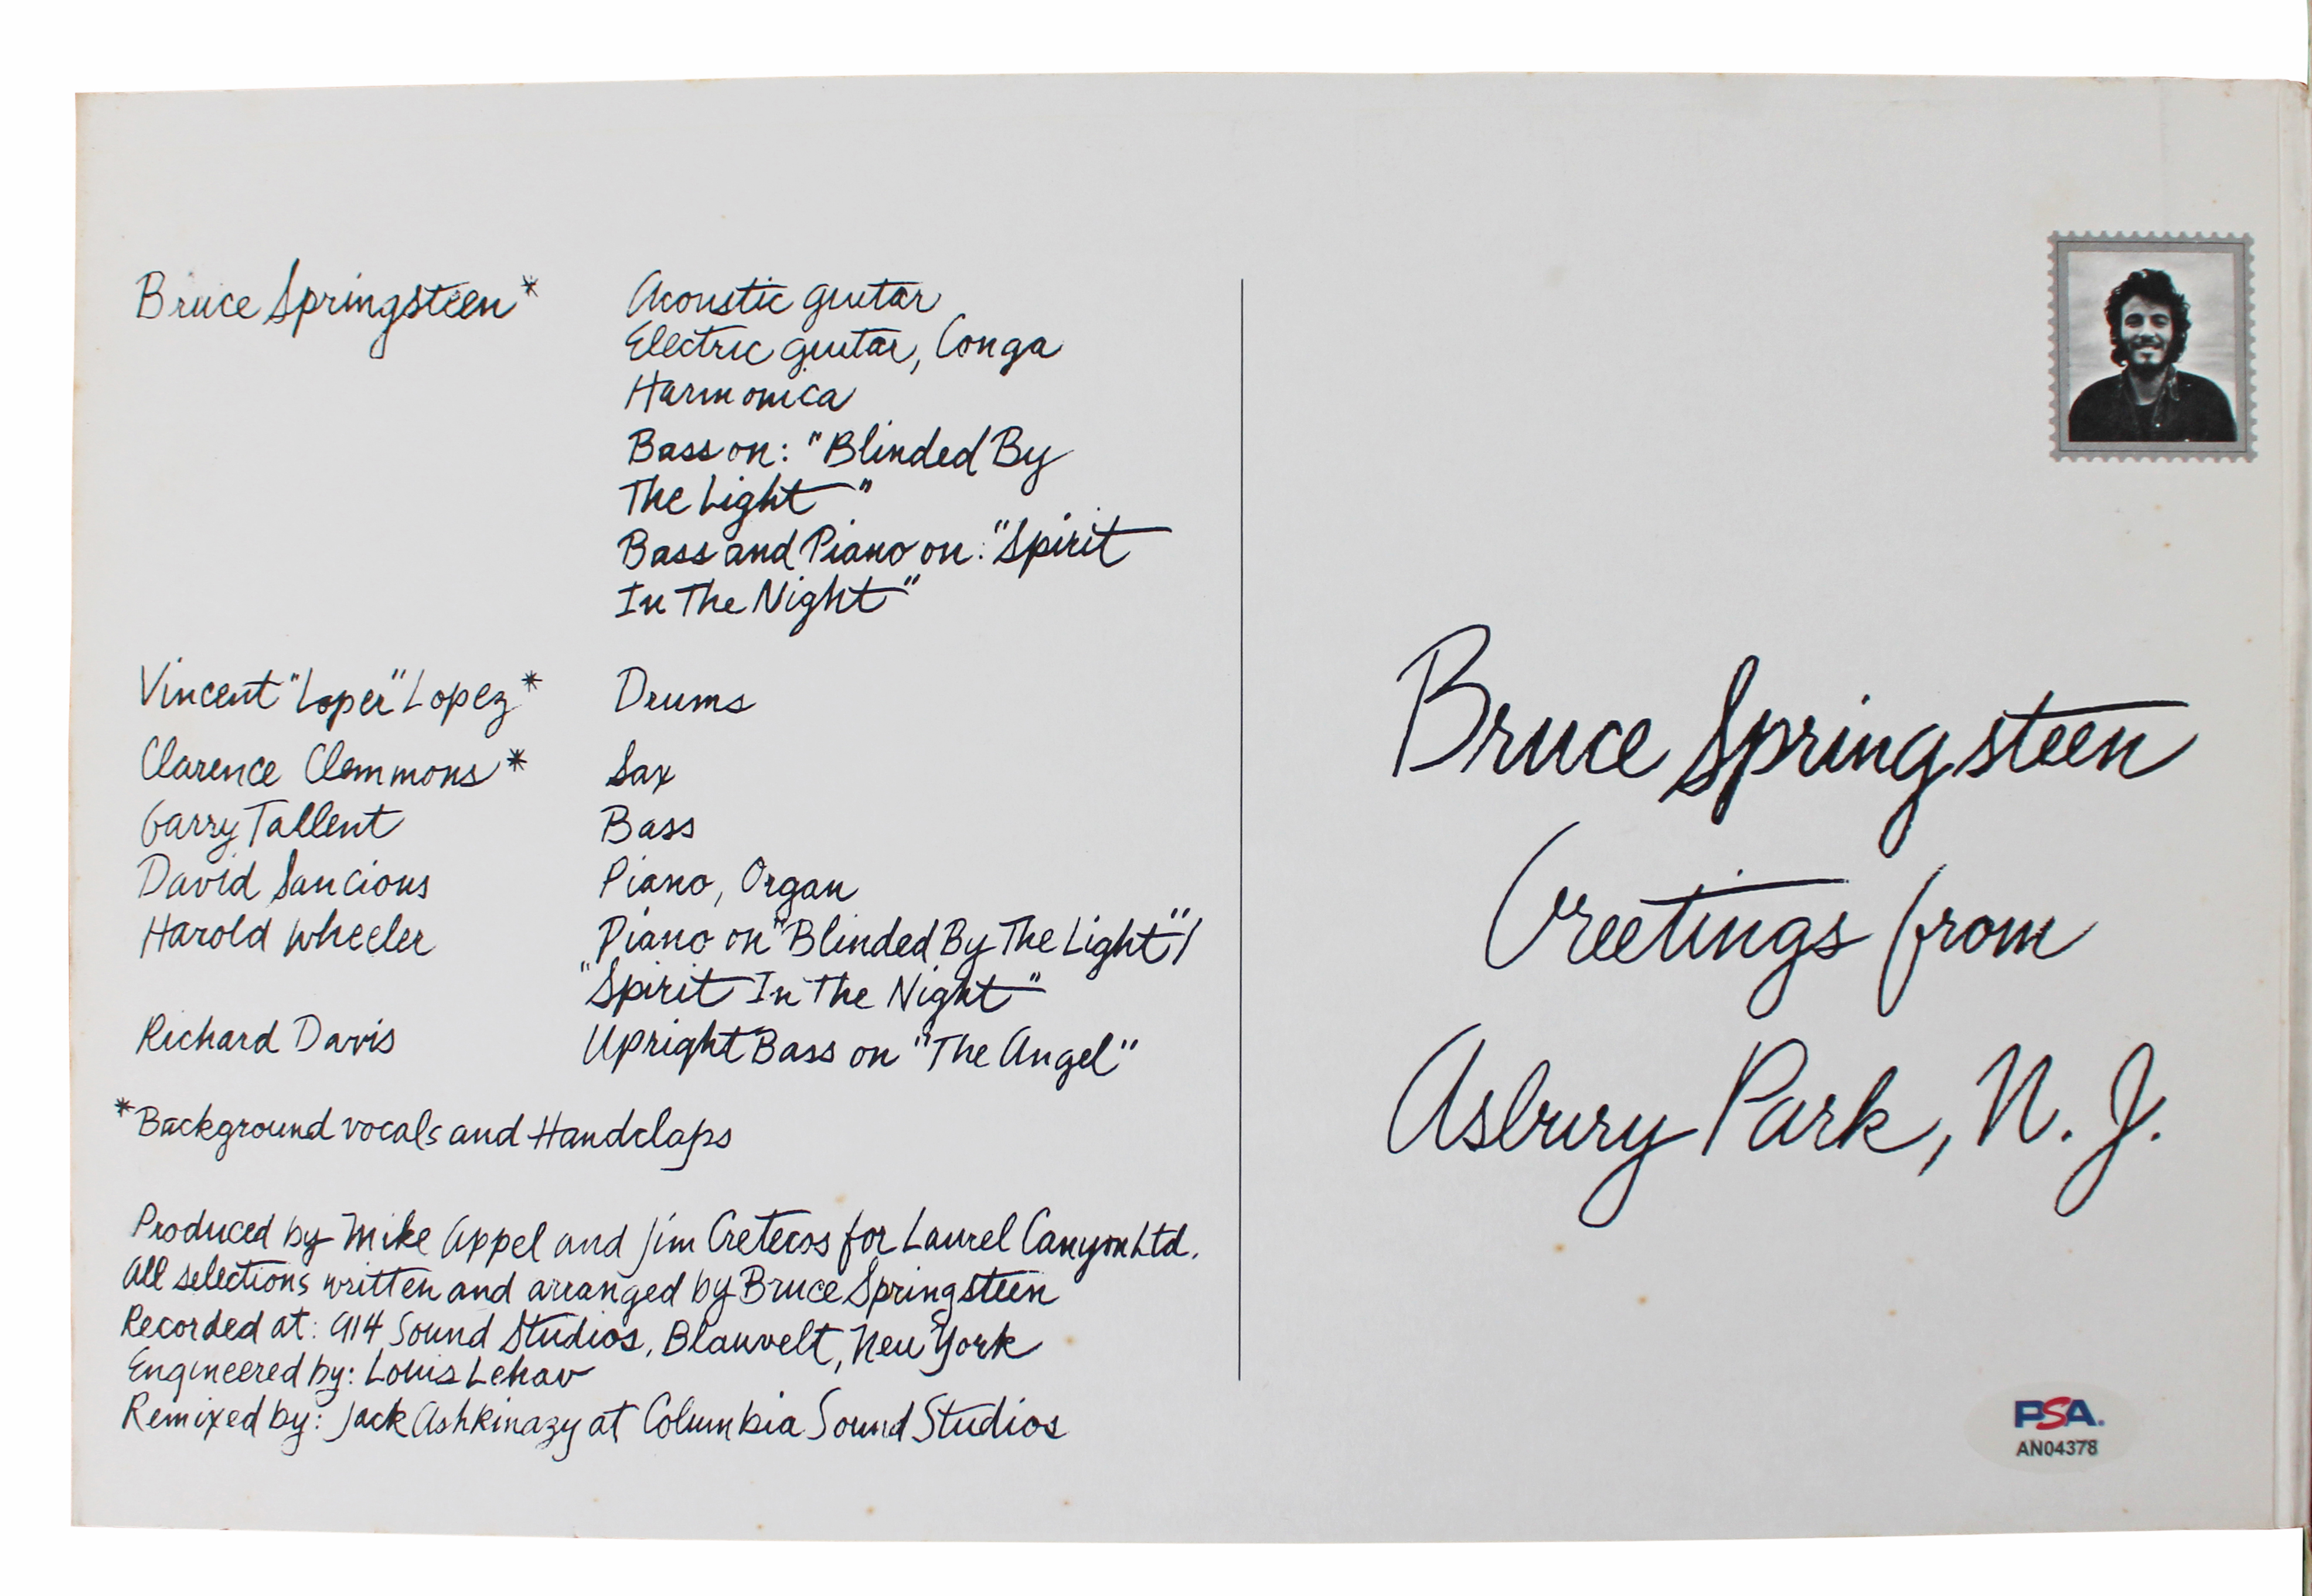 Bruce Springsteen* Acoustic guitar
Electric guitar, Conga
Harmonica
Bass on: "Blinded By
The Light"
Bass and Piano on: "Spirit
In The Night"
Vincent "Loper" Lopez* Drums
Clarence Clemmons* Sax
Garry Tallent Bass
David Sancious Piano, Organ
Harold Wheeler Piano on "Blinded By The Light"/
"Spirit In The Night"
Richard Davis Upright Bass on "The Angel"
*Background vocals and Handclaps
Produced by Mike Appel and Jim Cretecos for Laurel Canyon Ltd.
All selections written and arranged by Bruce Springsteen
Recorded at: 914 Sound Studios, Blauvelt, New York
Engineered by: Louis Lehav
Remixed by: Jack Ashkinazy at Columbia Sound Studios
Bruce Springsteen
Greetings from
Asbury Park, N. J.
PSA.
AN04378